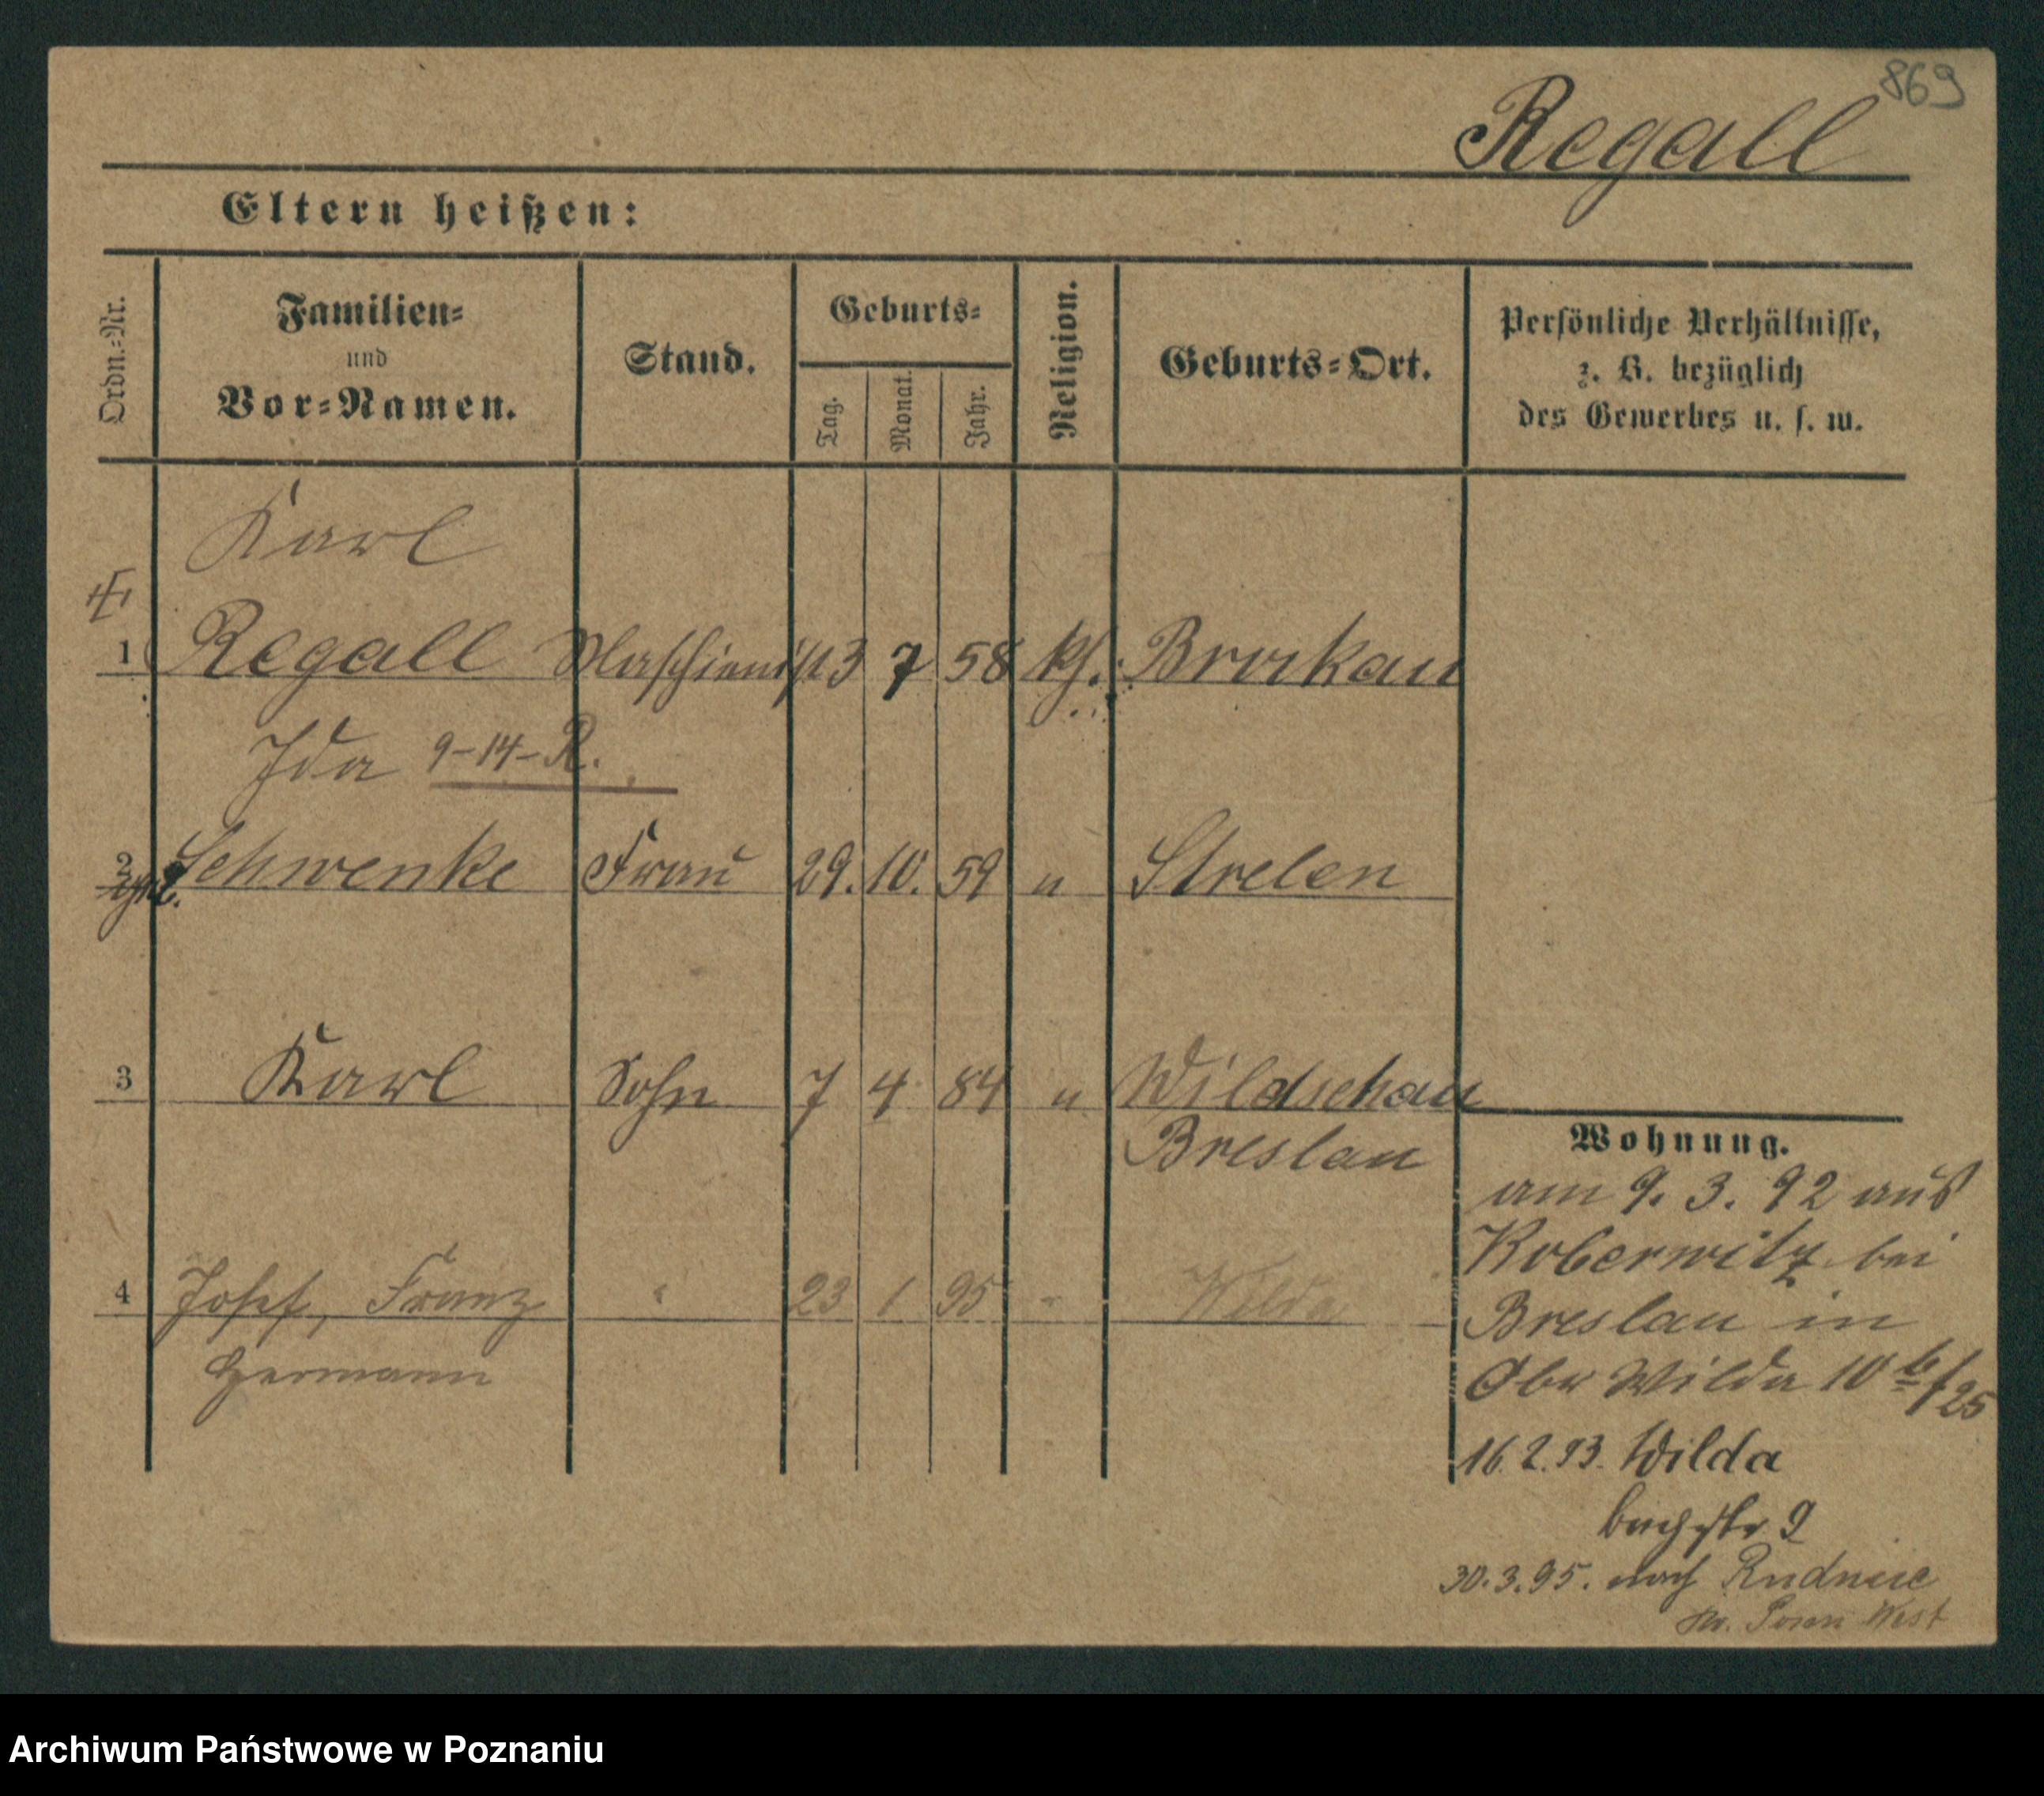 869
Regall
Eltern heißen:
Ordn.-Nr.
Familien-
und
Vor-Namen.
Stand.
Geburts-
Tag.
Monat.
Jahr.
Religion.
Geburts-Ort.
Persönliche Verhältnisse,
z. B. bezüglich
des Gewerbes u. s. w.
Karl
1 Regall Maschienist 13 7 58 kh. Brockau
Ida 9-14-R.
2 Schwenke Frau 29. 10. 59 " Strelen
3 Karl Sohn 7 4 84 " Wildschau
Breslau
4 Josef, Franz " 23 1 95 " Wilda
Hermann
Wohnung.
am 9. 3. 92 aus
Koberwitz bei
Breslau in
Ober Wilda 10 b/25
16. 2. 93. Wilda
30. 3. 95. nach Rudnicze
Kr. Posen West
Archiwum Państwowe w Poznaniu